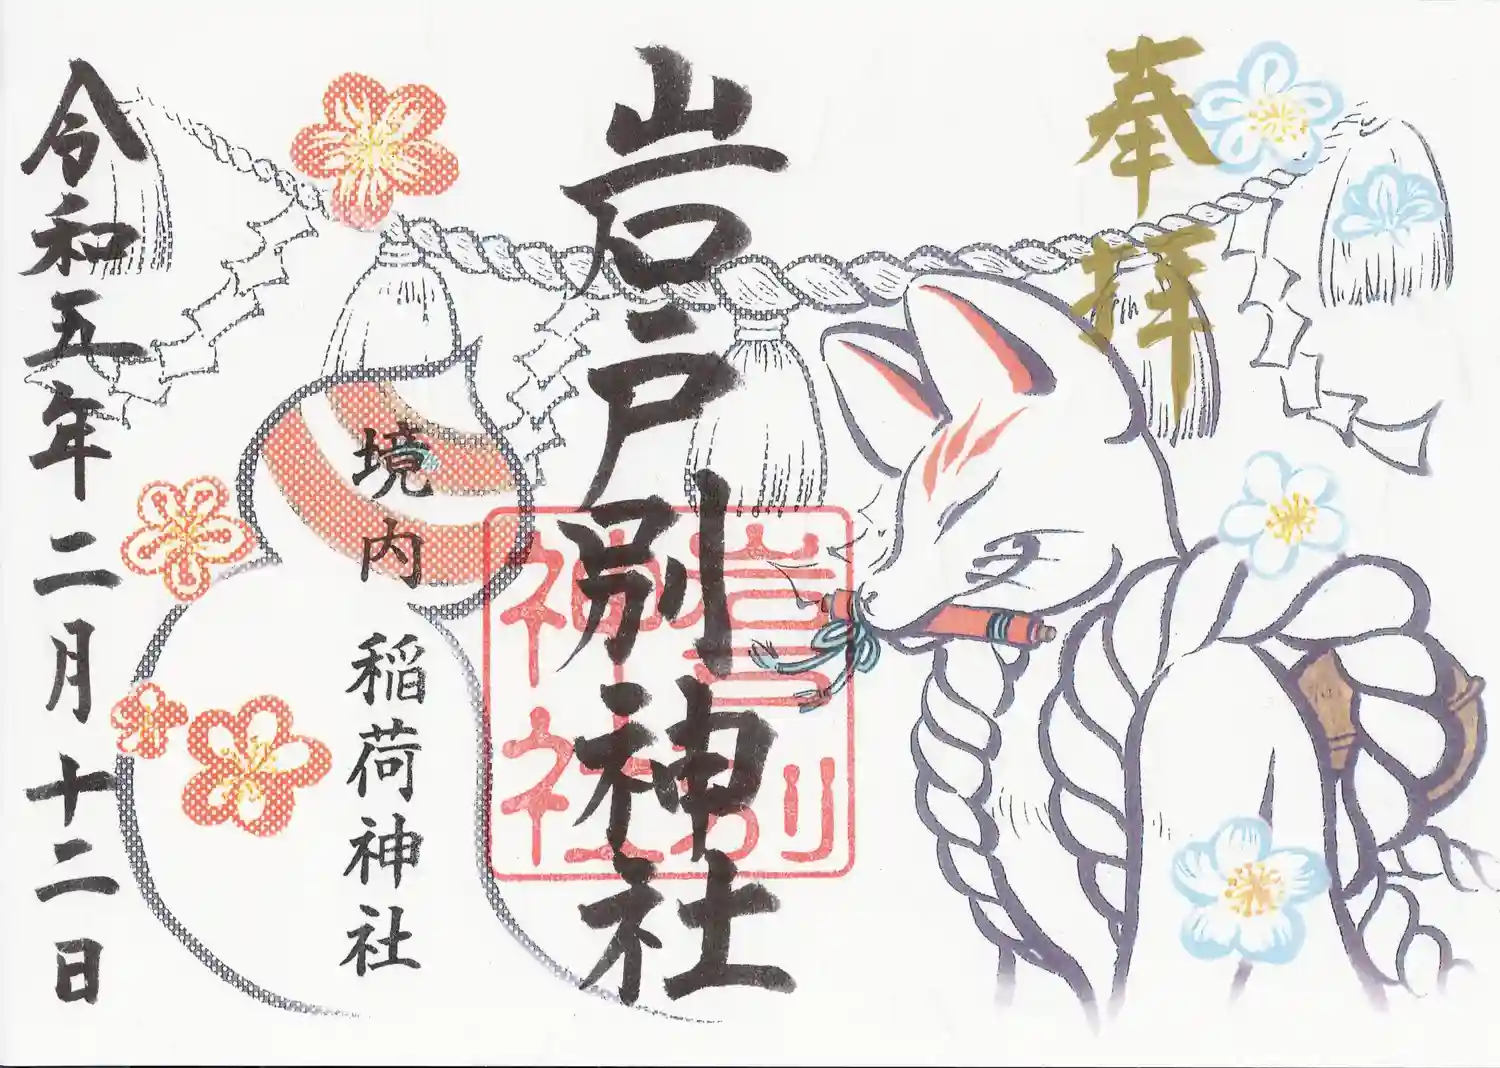 奉拝
岩戸別神社
岩戸別神社
境内
稲荷神社
令和五年二月十二日